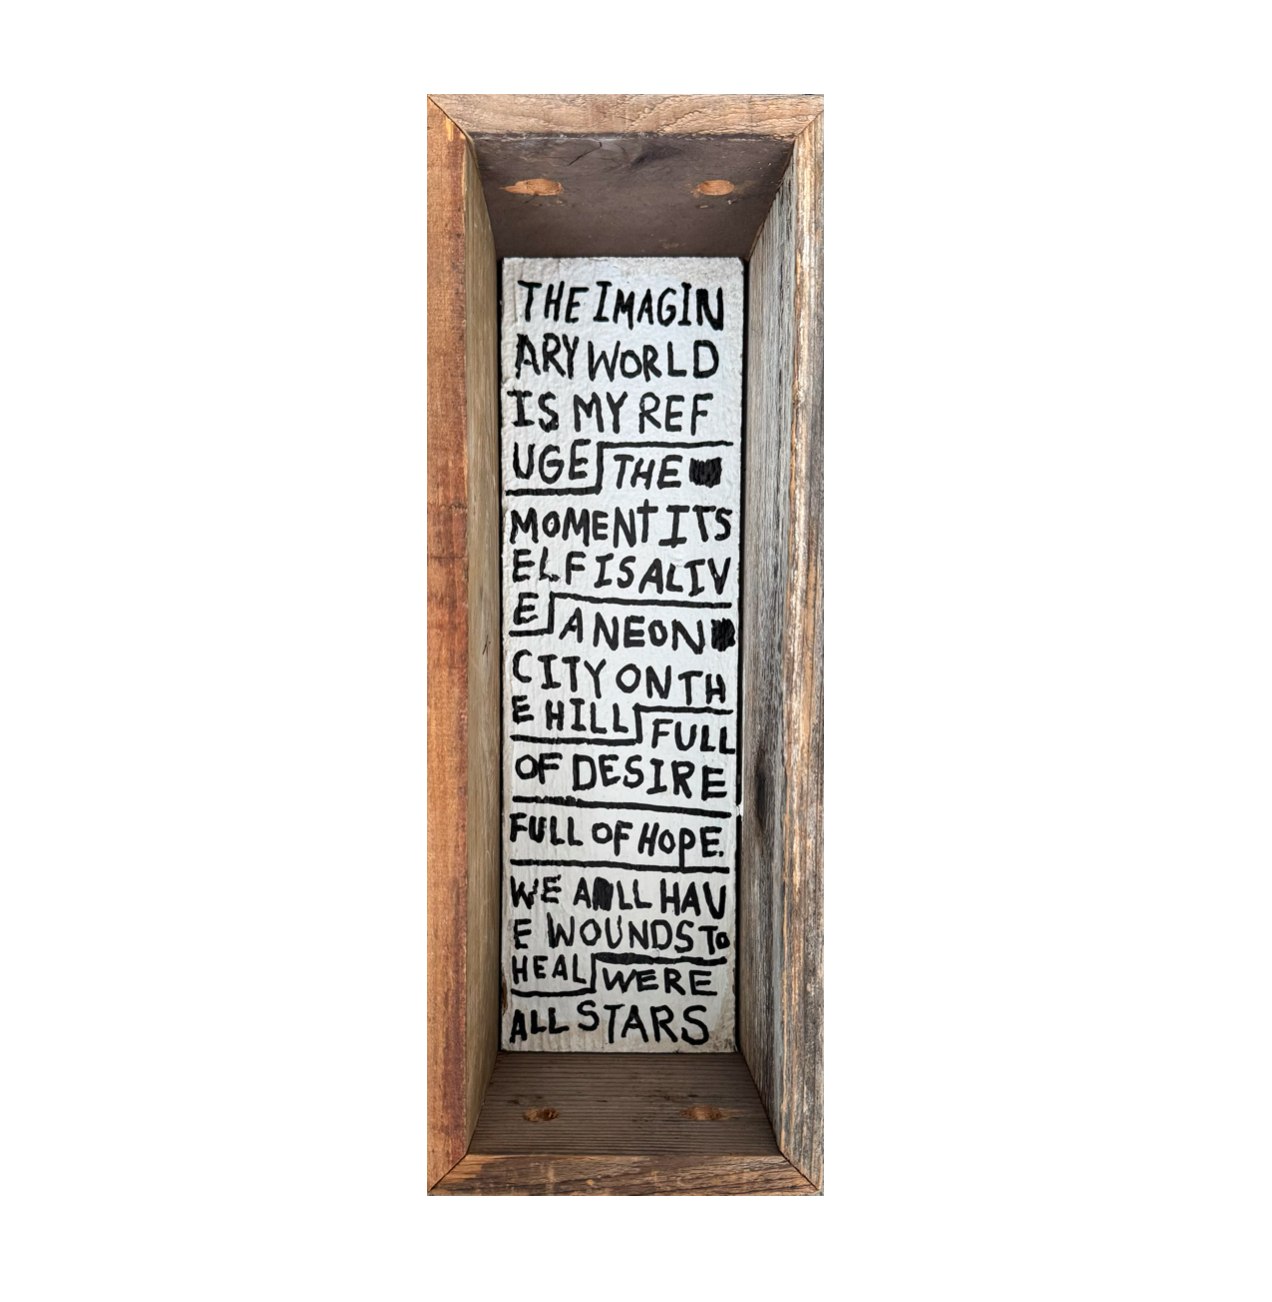 THE IMAGIN
ARY WORLD
IS MY REF
UGE THE
MOMENT ITS
ELF IS ALIV
E A NEON
CITY ON TH
E HILL FULL
OF DESIRE
FULL OF HOPE.
WE ALL HAV
E WOUNDS TO
HEAL WERE
ALL STARS